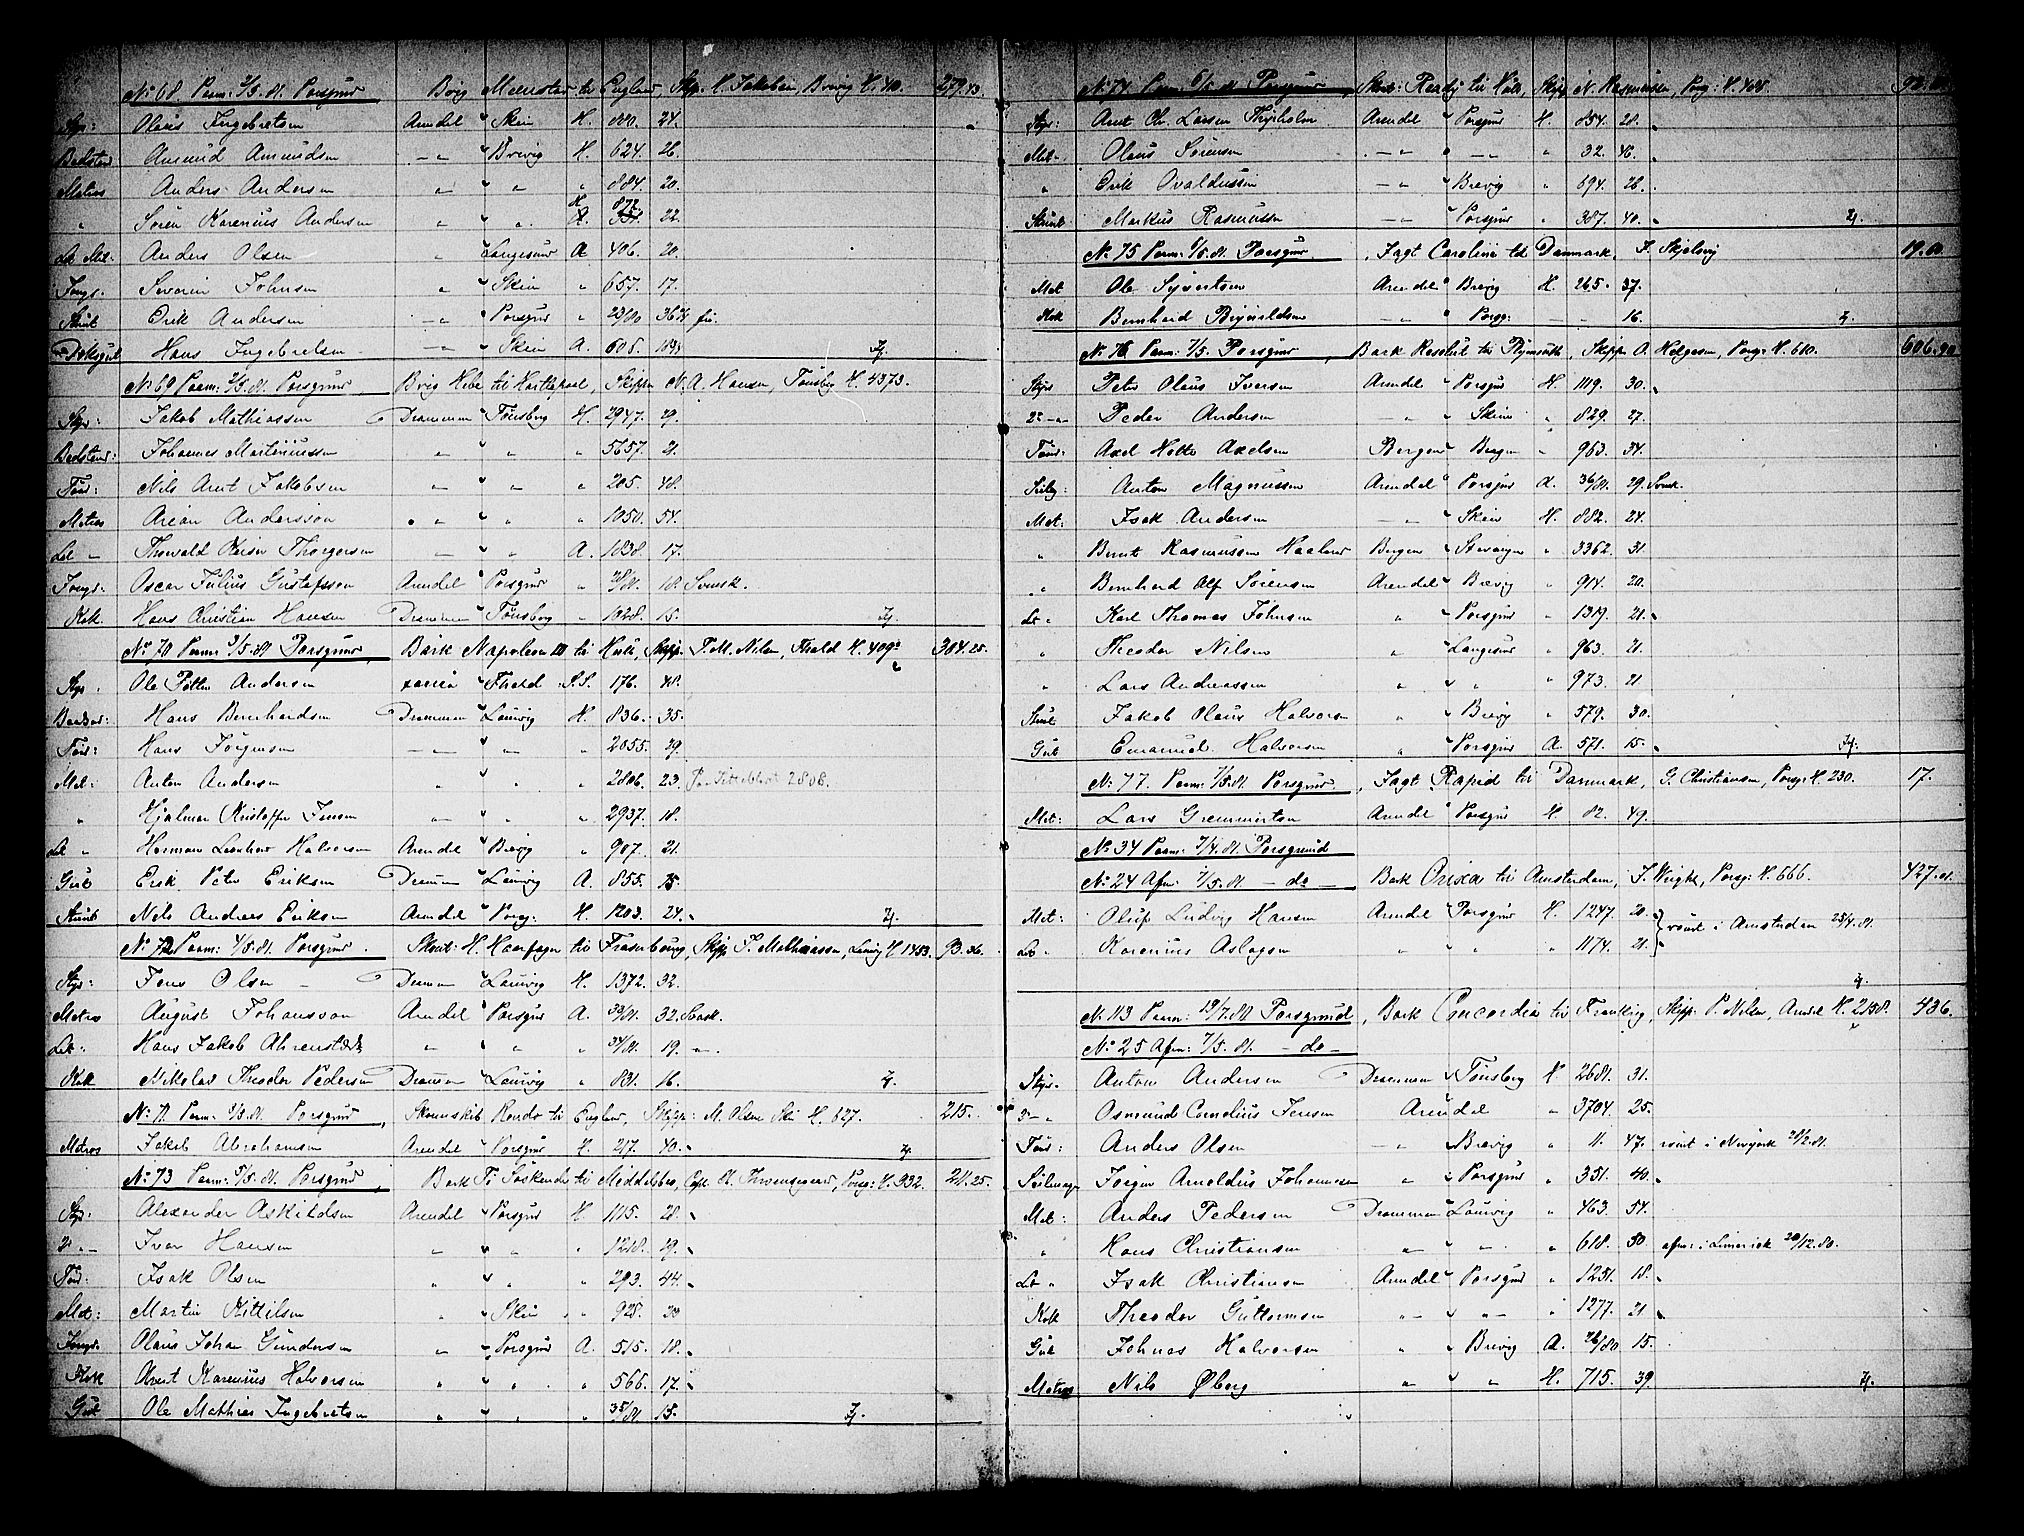 No 68. Paam: 2/5.81. Porsgrund Brig Mercator til England, Skp. H. Jakobsen, Brevig H. 40. 279.43
Styr: Olaus Ingebretsen Arendel " Skien H. 880. 24.
Bødsted Amund Amundsen " Brevig H. 624. 26.
Matros Anders Andersen " " " " 884. 20.
" Søren Karenius Andersen " " " 872. 22.
Let Mat: Anders Olsen " " Langesund A 406. 20.
Jungm: Severin Johnsen " " Skien " 657. 17.
Stuert Erik Andersen " " Porsgrund " 23/80 36
Dæksgut Hans Ingebretsen " " Skien A. 608.
No 69 Paam: 2/5.81. Porsgrund, Brig Hebe til Hartlepool, Skipper N. A. Hansen, Tønsberg H. 4373.
Styr: Jakob Mathiassen Drammen " Tønsberg H. 2947. 29.
Bødstmd: Johannes Martiniussen " " " " 5657. 21.
Tøm: Nils Arnt Jakobsen " " " " 205. 48.
Matros Arian Andersson " " " " 1050. 54.
Let " Thorvald Reiser Thorgersen " " " A. 1838. 17.
Jungm: Oscar Julius Gustafsson Arendel " Porsgrund " 28/81. 18. Svensk.
Kok Hans Christian Hansen Drammen " Tønsberg " 1028. 15.
No 70 Paam: 3/5.81 Porsgrund, Bark Napoleon III til Hull, Skipp. T. M. Nilsen, Thrald H. 409 304.25.
Styr. Ole Petter Andersen " S.S. 176. 48.
Hans Bernhardsen Drammen " Laurvig H. 836. 35.
Tøm: Hans Jørgensen " " " " 2055. 29.
Mat: Anton Andersen " " " 2806. 23. 2806.
" Hjalmar Kristoffer Jensen " " " " 2937. 18.
Let " Herman Leonhard Halvorsen Arendel " Brevig " 907. 21.
Gut Erik Peter Eriksen Drammen " Laurvig A. 855. 15.
Stuert Nils Andreas Eriksen Arendel " Porsg: H. 1203. 24.
No 72 Paam: 4/5.81. Porsgrund. Skont: H. Haarfager til Fraserburg, Skipp J. Mathiassen, Laurvig H 1453. 93.36.
Styr: Jens Olsen Drammen " Laurvig H. 1372. 32.
Matros August Johansson Arendel " Porsgrund A. 33/81. 32. Svensk.
Let: Hans Jakob Ahrenstedt " " " " 34/81. 19. "
Kok Nikolai Theodor Pedersen Drammen " Laurvig " 831. 16.
No 71. Paam: 3/5.81. Porsgrund, Skonnskib Rondo til England, Skipp: M. Olsen Skien H. 627. 215.
Matros Jakob Abrahamsen Arendel " Porsgrund H. 217. 40.
No 73 Paam: 5/5.81. Porsgrund, Bark Ti Søskende til Middelsbro, Porsg: H. 932. 211.25.
Styr: Alexander Askildsen Arendel " Porsgrund H 1115. 28.
2d " Ivar Hansen " " " " 1218. 29.
Tøm: Isak Olsen " " " " 293. 44.
Mat: Martin Kittilsen " Skien " 928. 20
Jungm: Olaus Johan Gundersen " " Porsgrund A. 515. 18.
Kok Anert Karenius Halvorsen " " " " 566. 17.
Gut Ole Mathias Ingebretsen " " " " 35/81 15.
No 74 Paam: 6/5.81 Porsgrund, Skont: Ready til Hull, Skipp N. Rasmussen, Porsg: H. 405.
Styr: Arnt Chr. Larsen Thorsholm Arendel " Porsgrund H. 854. 28.
Mat " Olaus Sørensen " " " " 32. 46.
" Erik Ovaldussen " " Brevig " 694. 26.
Stuert Markus Rasmussen " " Porsgrund " 387. 40.
No 75 Paam: 6/5.81. Porsgrund, Jagt Caroline til Danmark, J. Skjelvig 19.
Mat Ole Syvertsen Arendel " Brevig H. 265. 37.
Kok Bernhard Brynildsen " " Porsg: 16.
No 76 Paam: 7/5. Porsgrund, Bark Resolut til Plymouth, Skipp O. Helgesen, Porsg: H. 610. 606.90
Styr Peter Olaus Iversen Arendel " Porsgrund H. 1119. 30.
2d " Peder Andersen " " Skien " 829. 27.
Tøm: Axel Holte Axelsen Bergen " Bergen " 963. 34.
Seilm: Anton Magnussen Arendel " Porsgrund A. 36/81. 29. Svensk.
Mat: Isak Andersen " " Skien H. 882. 24.
" Bernt Rasmussen Haaland Bergen " Stavanger " 3362. 31.
" Bernhard Alf Sørensen Arendel " Brevig " 914. 20.
Let " Karl Thomas Johnsen " " Porsgrund " 1319. 21.
" Theodor Nilsen " " Langesund " 963. 21.
" Lars Andreassen " " " " 973. 21
Stuert Jakob Olaus Halvorsen " " Brevig " 579. 30.
Gut Emanuel Halvorsen " " Porsgrund A. 571. 15.
No 77. Paam: 7/5.81. Porsgrund, Jagt Rapid til Danmark, G. Christiansen, Porsg: H. 230. 17.
Mat: Lars Gremmertsen Arendel " Porsgrund H. 82. 49.
No 34 Paam: 7/4.81. Porsgrund
No 24 Afm: 7/5.81. — do — Bark Orixa til Amsterdam, J. Wright, Porsg: H. 666. 427.81.
Mat: Oluf Ludvig Hansen Arendel " Porsgrund H. 1247. 20. } rømt i Amsterdam 25/4.81.
Let " Karenius Aslagsen " " " " 1174. 21.
No 113 Paam: 19/7.80 Porsgrund, Bark Concordia til Skipp: P. Nilsen, Arendal H. 2158. 436.
No 25 Afm: 7/5.81. — do —
Styr. Anton Andersen Drammen " Tønsberg H. 2681. 31.
2— " Osmund Cornelius Jensen Arendel " 3704. 25.
Tøm: Anders Olsen " " Brevig " 11. 47. rømt i Newyork 28/2.81.
Seilmager Jørgen Arnoldus Johannesen " " Porsgrund " 351. 40.
Mat: Anders Pedersen Drammen " Laurvig " 463. 54.
" Hans Christiansen " " " " 618. 50 afm: i Limerick 20/12.80.
Let " Isak Christiansen Arendel " Porsgrund " 1251. 18.
Kok Theodor Guttormsen " " " " 1277. 21
Gut Johnas Halvorsen " " Brevig A. 26/80 15.
Matros Nils Øberg " " " H. 715. 39.